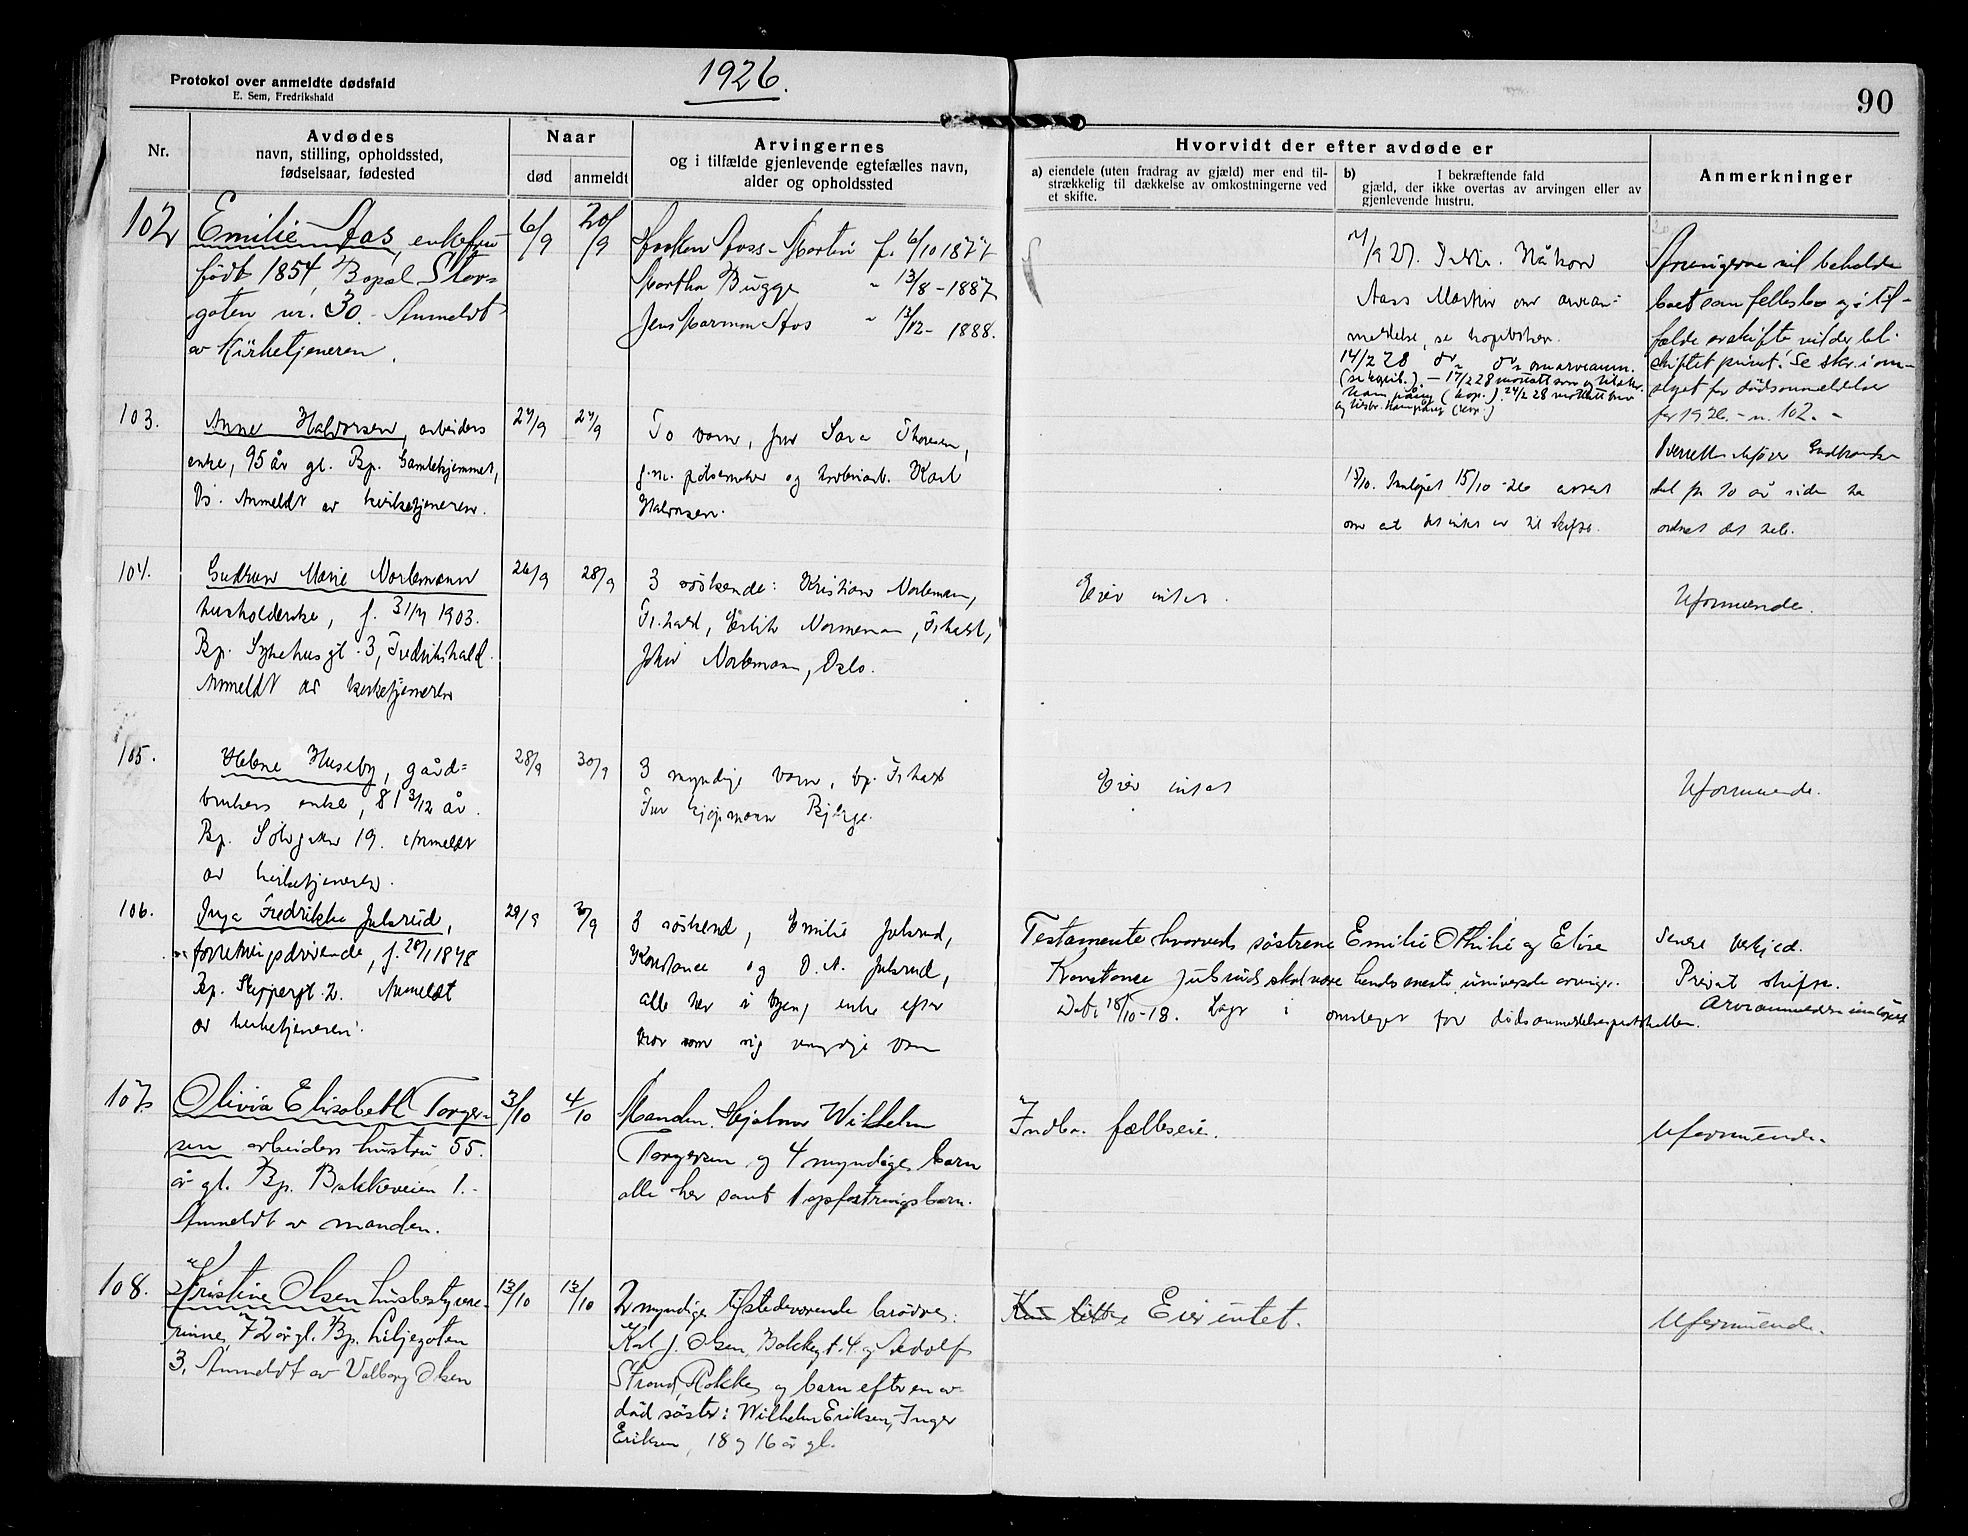 Protokol over anmeldte dødsfald
E. Sem, Fredrikshald
1926.
90
Nr.
Avdødes
navn, stilling, opholdssted,
fødselsaar, fødested
Naar
død
anmeldt
Arvingernes
og i tilfælde gjenlevende egtefælles navn,
alder og opholdssted
Hvorvidt der efter avdøde er
a) eiendele (uten fradrag av gjæld) mer end til-
strækkelig til dækkelse av omkostningerne ved
et skifte.
b) I bekræftende fald
gjæld, der ikke overtas av arvingen eller av
gjenlevende hustru.
Anmerkninger
102
Emilie Aas, enkefru
født 1854, Bopæl Stor-
gaten nr. 30. Anmeldt
av Kirketjeneren.
6/9
20/9
Haaken Aass-Martin f. 6/10 1877
Martha Bugge " 13/8-1887
Jens Marman Aas " 13/12-1888.
Håkon
Aass Martin om arvean-
meldelse, se kopiboken.
14/2 28
Arvingerne vil beholde
boet som fellesbo og i til-
fælde av skifte vil der bli
skiftet privat. Se skr. i om-
slaget for dødsanmeldelser
for 1926 - nr. 102. -
103.
Anne Halvorsen, arbeiders
enke, 95 år gl. Bp. Gamlehjemmet,
Os. Anmeldt av kirketjeneren.
27/9
27/9
To barn, fru Sara Thoresen,
g.m. pølsemaker og
Karl
Halvorsen.
18/10. Innløpet 15/10-26 attest
om at det intet er til skifte.
Overrettssakfører
for 10 år siden ha
ordnet det hele.
104.
Gudrun Marie Norlemann
husholderske, f. 31/7 1903.
Bp. Sykehusgt. 3, Fredrikshald.
Anmeldt av kirketjeneren
26/9
28/9
3 søskende: Kristian Norlemann,
Fr.hald, Erlik Normemann, Fr.hald,
John Norlemann, Oslo.
Eier intet.
Uformuende.
105.
Helene Huseby, gård-
brukers enke, 81 3/12 år.
Bp. Sølvgaten 19. Anmeldt
av kirketjeneren.
28/9
30/9
3 myndige barn, bp. Fr.hald
Fru kjøpmann Bjørge.
Eier intet
Uformuende.
106.
Inga Fredrikke Julsrud,
forretningsdrivende, f. 28/1 1848
Bp. Skippergt. 2. Anmeldt
av kirketjeneren.
29/9
30/9
3 søskend, Emilie Julsrud,
Konstance og O. A. Julsrud,
alle her i byen, enke efter
bror som sig myndige barn
Testamente hvorved søstrene Emilie Othilie og Elise
Konstance Julsrud skal være hendes eneste universale arvinger.
Dat. 18/10-18. Lagt i omslaget for dødsanmeldelsesprotokollen.
Senere vekjed.
Privat skifte.
Arveanmeldelse innløpet
107.
Olivia Elisabeth Torger-
sen arbeiders hustru 55.
år gl. Bp. Bakkeveien 1.-
Anmeldt av manden.
3/10
4/10
Manden Hjalmar Wilhelm
Torgersen og 4 myndige barn
alle her samt 1 opfostringsbarn.
Indbo. fælleseie.
Uformuende.
108.
Kristine Olsen husbestyrer-
inne, 72 år gl. Bp. Liljegaten
3. Anmeldt av Valborg Olsen
13/10
13/10
2 myndige tilstedeværende brødre:
Karl J. Olsen, Bakkegt. 4. og Adolf
Strand, Rokke og barn efter en av-
død søster: Wilhelm Eriksen, Inger
Eriksen, 18 og 16 år gl.
Kun litte Eier intet.
Uformuende.